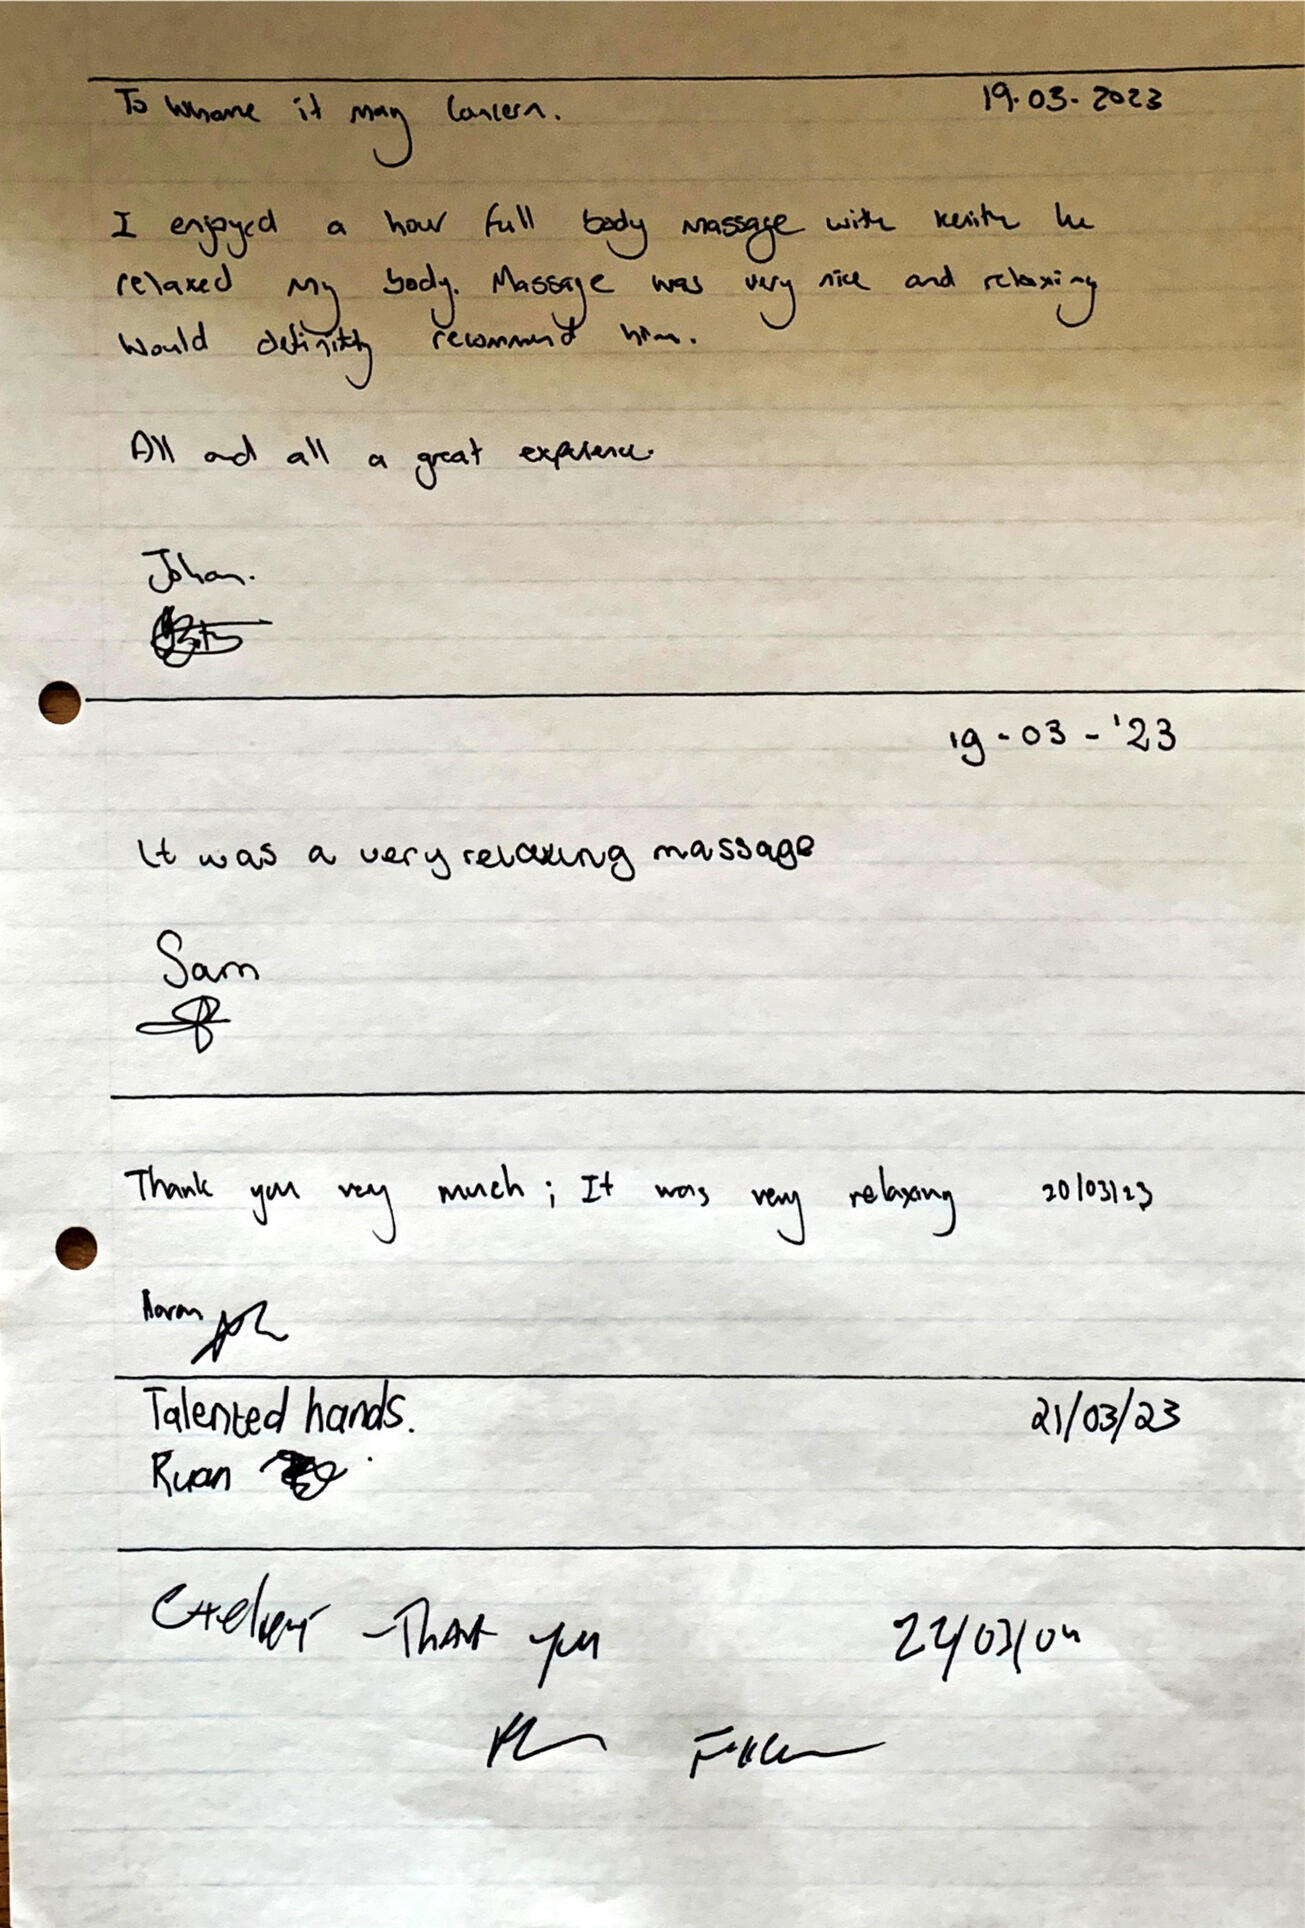 To Whome it may Concern. 19.03-2023
I enjoyed a hour full body massage with Keith he
relaxed my body. Massage was very nice and relaxing
Would definitly recommend him.
All and all a great experence.
Johan.
19-03-'23
It was a very relaxing massage
Sam
Thank you very much; It was very relaxing 20/03/23
Aaron
Talented hands. 21/03/23
Ruan
Thank you